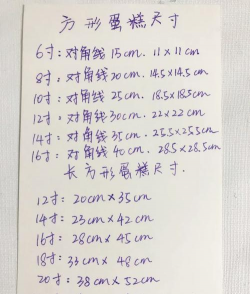 方形蛋糕尺寸
6寸:对角线15cm. 11×11cm
8寸:对角线20cm. 14.5×14.5cm
10寸:对角线25cm. 18.5×18.5cm
12寸:对角线30cm. 22×22cm
14寸:对角线35cm. 25.5×25.5cm
16寸:对角线40cm. 28.5×28.5cm
长方形蛋糕尺寸.
12寸:20cm×35cm
14寸:23cm×42cm
16寸:28cm×45cm
18寸:33cm×48cm
20寸:38cm×52cm